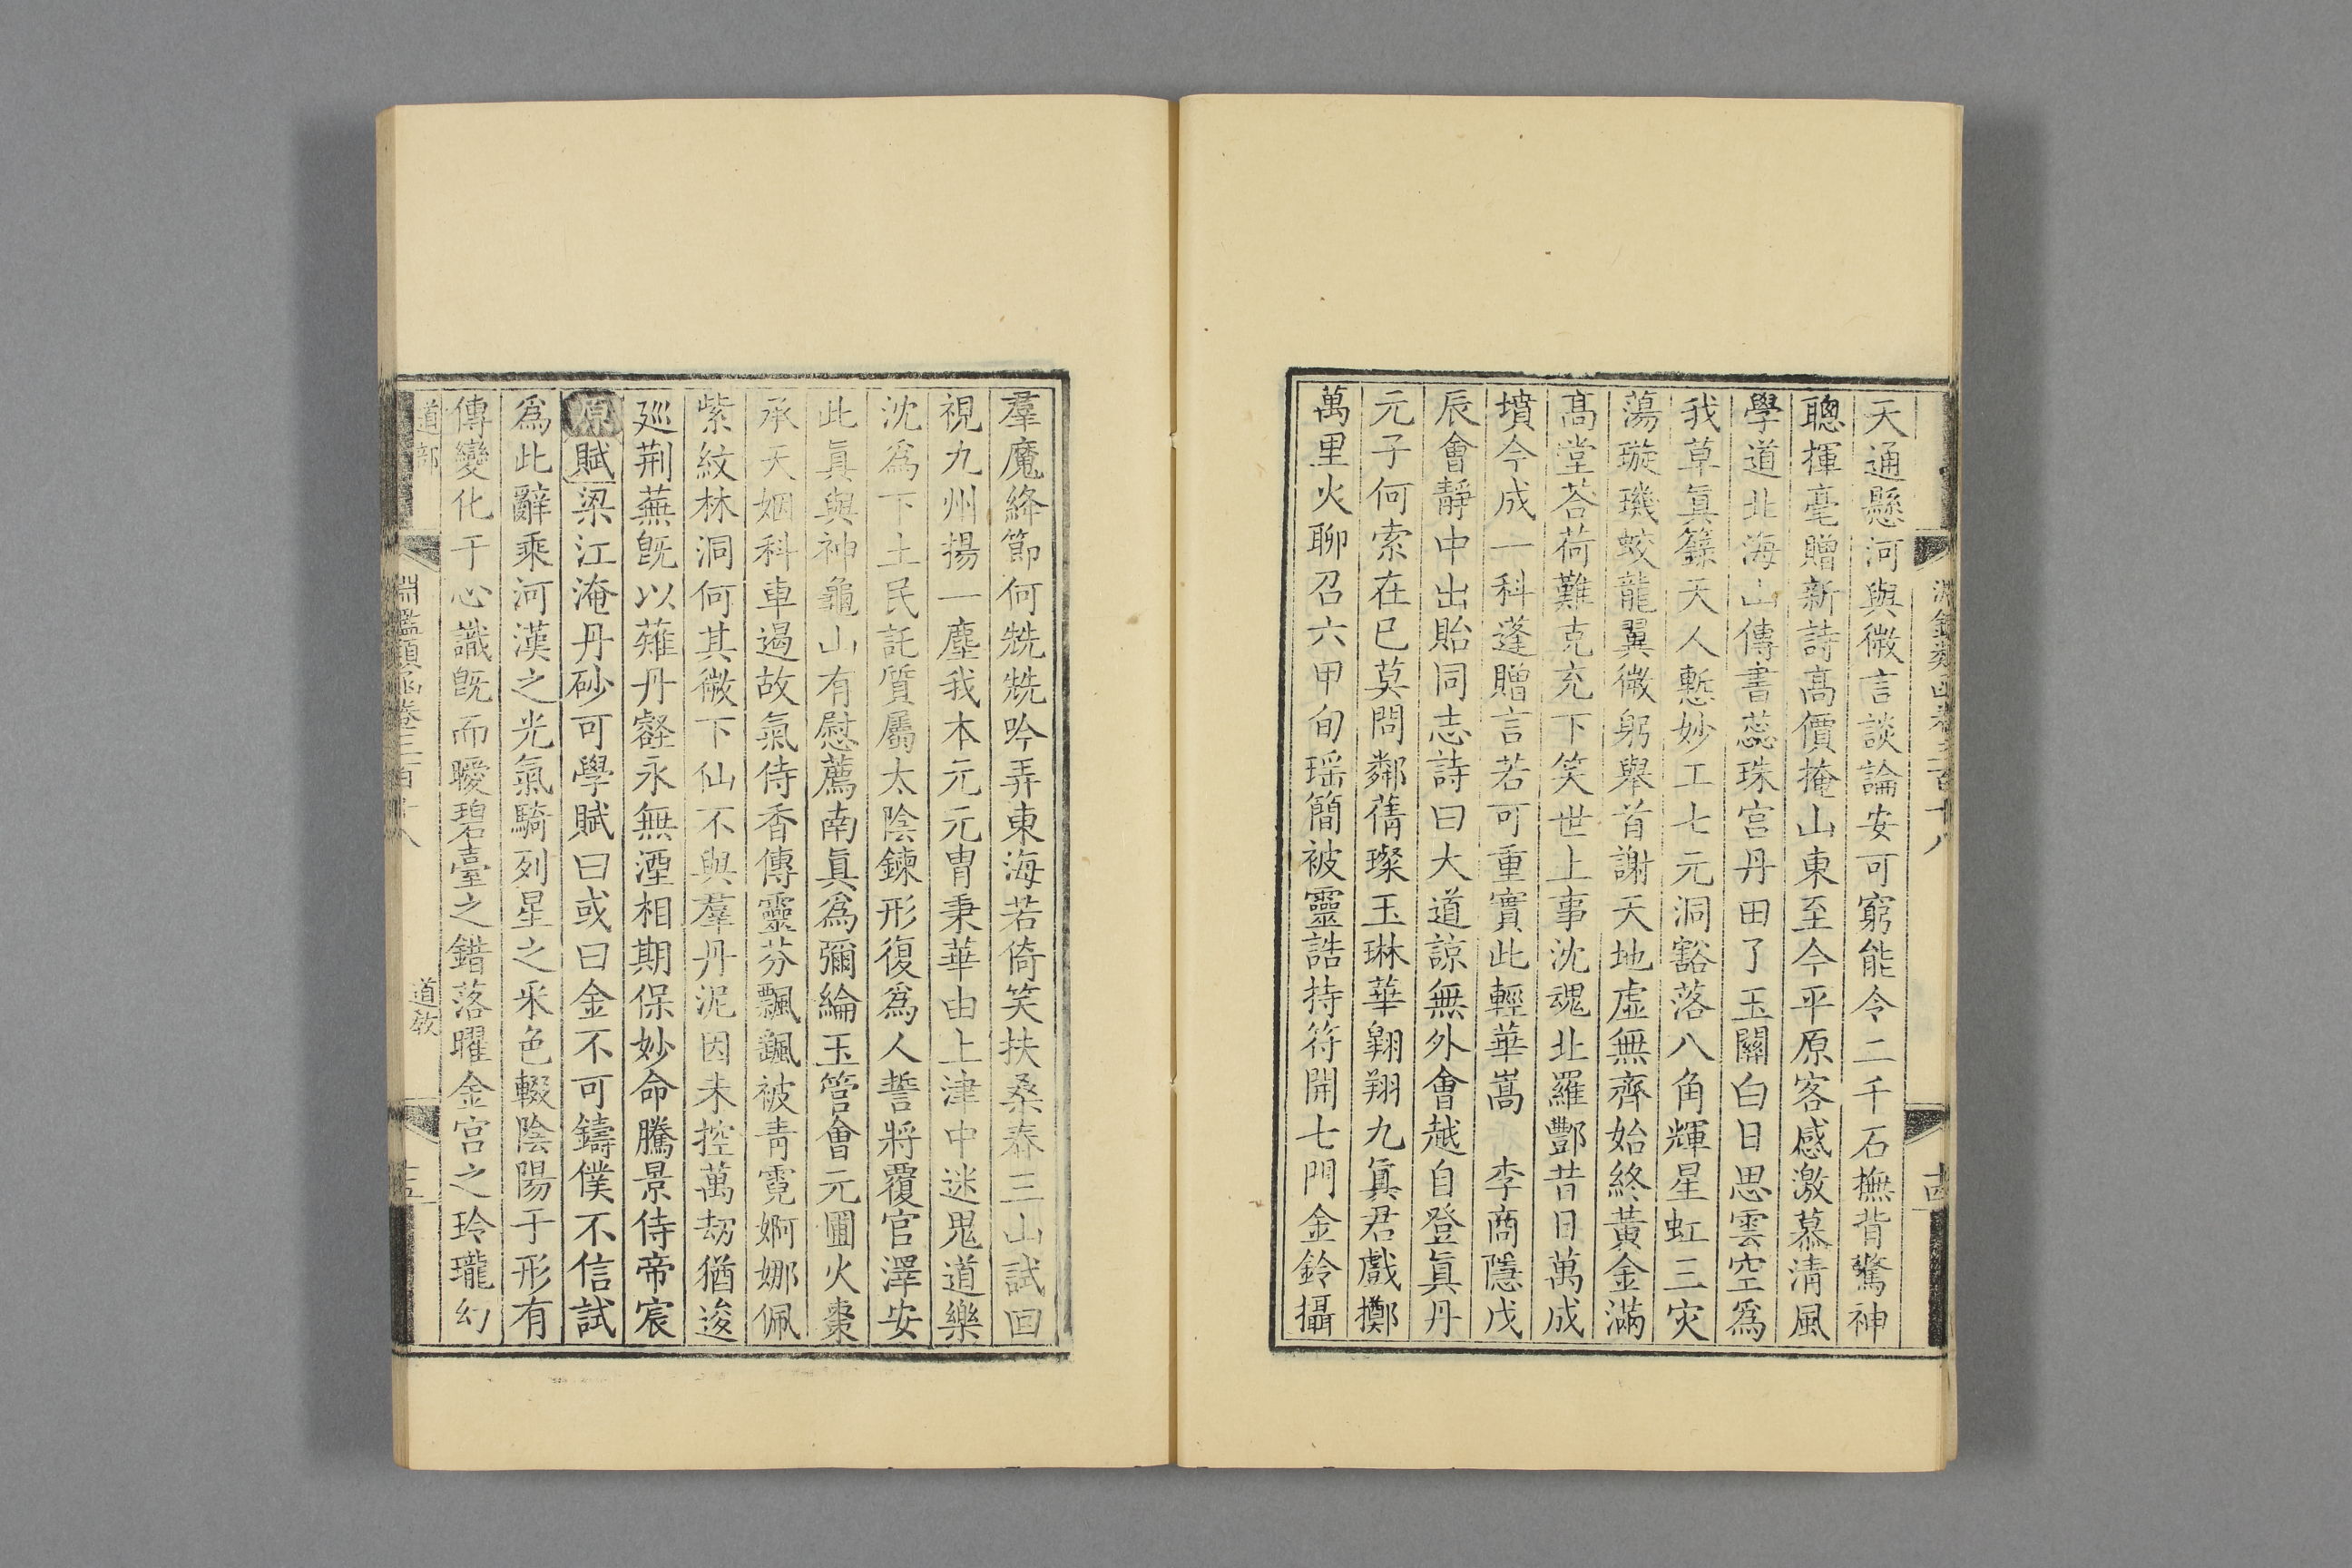 淵鑑類函卷三百十八
十四
天通懸河與微言談論安可窮能令二千石撫背驚神
聰揮毫贈新詩高價掩山東至今平原客感激慕淸風
學道北海山傳書蕊珠宮丹田了玉闕白日思雲空爲
我草眞籙天人慙妙工七元洞豁落八角輝星虹三灾
蕩璇璣蛟龍翼微躬舉首謝天地虛無齊始終黃金滿
高堂荅荷難克充下笑世上事沈魂北羅酆昔日萬成
墳今成一科蓬贈言若可重實此輕華嵩 李商隱戊
辰會靜中出貽同志詩曰大道諒無外會越自登眞丹
元子何索在已莫問鄰蒨璨玉琳華翱翔九眞君戲擲
萬里火聊召六甲旬瑶簡被靈誥持符開七門金鈴攝
羣魔絳節何兟兟吟弄東海若倚笑扶桑春三山試回
視九州揚一塵我本元元胄秉華由上津中迷鬼道樂
沈爲下土民託質屬太陰鍊形復爲人誓將覆官澤安
此眞與神龜山有慰薦南眞爲彌綸玉管會元圃火棗
承天姻科車遏故氣侍香傳靈芬飄飄被青霓婀娜佩
紫紋林洞何其微下仙不與羣丹泥因未控萬刼猶逡
廵荆蕪旣以薙丹壑永無湮相期保妙命騰景侍帝宸
原賦梁江淹丹砂可學賦曰或曰金不可鑄僕不信試
爲此辭乘河漢之光氣騎列星之采色輟陰陽于形有
傳變化于心識旣而曖碧臺之錯落曜金宮之玲瓏幻
道部
淵鑑類函卷三百十八
道敎
十五